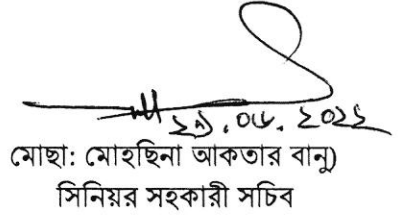 ২৯.০৬.২০২২
মোছা: মোহছিনা আকতার বানু)
সিনিয়র সহকারী সচিব